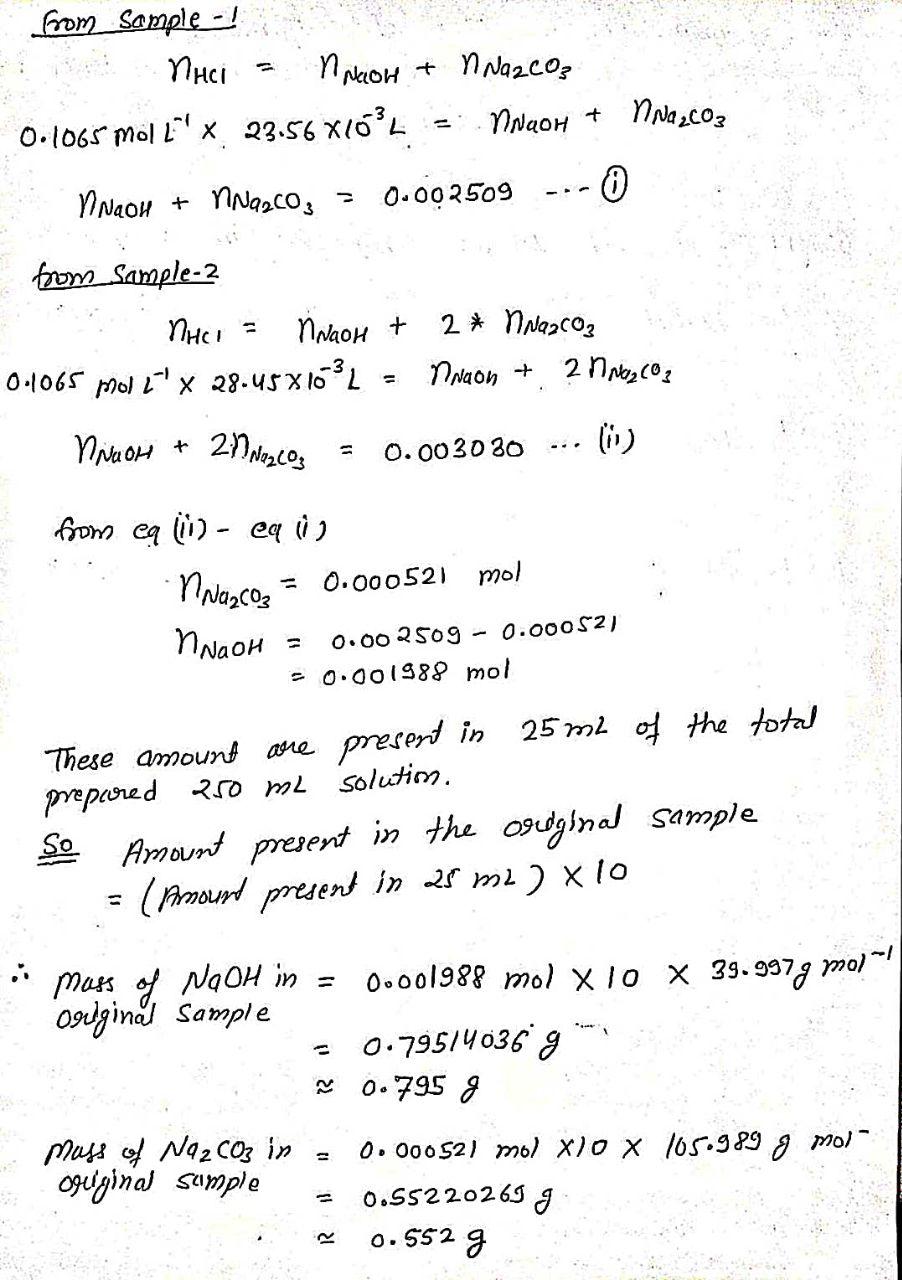 from Sample-1
nHCl = nNaOH + nNa₂CO₃
0.1065 mol L⁻¹ × 23.56 × 10⁻³ L = nNaOH + nNa₂CO₃
nNaOH + nNa₂CO₃ = 0.002509 ---- (i)
from Sample-2
nHCl = nNaOH + 2 * nNa₂CO₃
0.1065 mol L⁻¹ × 28.45 × 10⁻³ L = nNaOH + 2 nNa₂CO₃
nNaOH + 2nNa₂CO₃ = 0.003030 ... (ii)
from eq (ii) - eq (i)
nNa₂CO₃ = 0.000521 mol
nNaOH = 0.002509 - 0.000521
= 0.001988 mol
These amount are present in 25 mL of the total
prepared 250 mL solution.
So Amount present in the original sample
= (Amount present in 25 mL) × 10
∴ Mass of NaOH in = 0.001988 mol × 10 × 39.997 g mol⁻¹
original Sample
= 0.79514036 g
≈ 0.795 g
Mass of Na₂CO₃ in = 0.000521 mol × 10 × 105.989 g mol⁻
original sample = 0.55220269 g
≈ 0.552 g